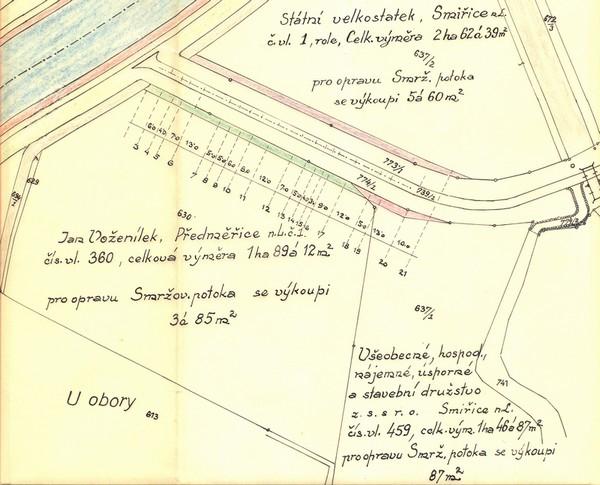 Státní velkostatek, Smiřice n.L.
č. vl. 1, role, Celk. výměra 2ha 62á 39m²
637/2
pro opravu Smrž. potoka
se výkoupí 5á 60m²
672/3
773/1
774/2
739/2
3 4 5 6 7 8 9 10 11 12 13 14 15 16 17 18 19 20 21
629
630
Jan Voženílek, Předměřice n.L.č.1.
čís. vl. 360, celková výměra 1ha 89á 12m²
pro opravu Smržov. potoka se výkoupí
3á 85m²
637/1
Všeobecné, hospod.,
nájemné, úsporné
a stavební družstvo
z. s. s r. o. Smiřice n.L.
čís. vl. 459, celk. vým. 1ha 46á 87m²
pro opravu Smrž. potoka se výkoupí
87m²
741
U obory
613